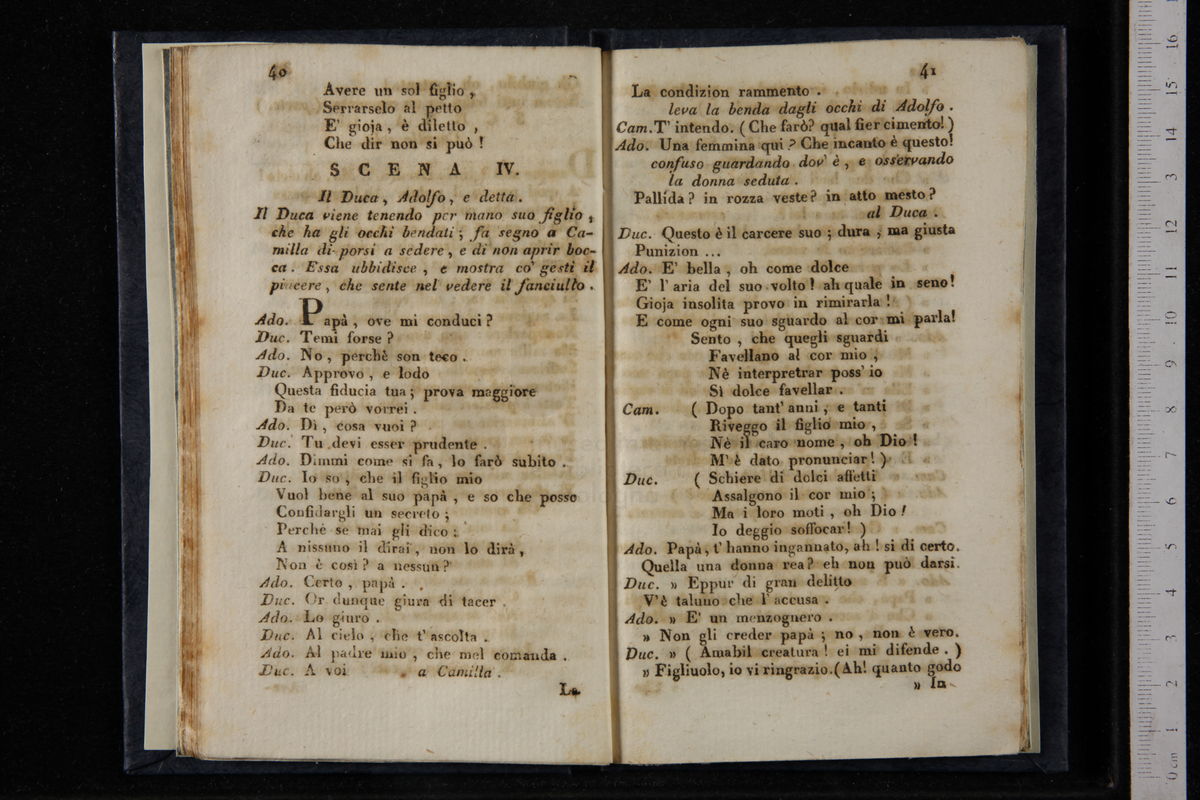 40
Avere un sol figlio ,
Serrarselo al petto
E' gioja , è diletto ,
Che dir non si può !
SCENA IV.
Il Duca , Adolfo , e detta .
Il Duca viene tenendo per mano suo figlio ,
che ha gli occhi bendati ; fa segno a Ca-
milla di porsi a sedere , e di non aprir boc-
ca . Essa ubbidisce , e mostra co' gesti il
piacere , che sente nel vedere il fanciullo .
Ado. Papà , ove mi conduci ?
Duc. Temi forse ?
Ado. No , perchè son teco .
Duc. Approvo , e lodo
Questa fiducia tua ; prova maggiore
Da te però vorrei .
Ado. Dì , cosa vuoi ?
Duc. Tu devi esser prudente .
Ado. Dimmi come si fa , lo farò subito .
Duc. Io so , che il figlio mio
Vuol bene al suo papà , e so che posso
Confidargli un secreto ;
Perchè se mai gli dico :
A nissuno il dirai , non lo dirà ,
Non è così ? a nessun ?
Ado. Certo , papà .
Duc. Or dunque giura di tacer .
Ado. Lo giuro .
Duc. Al cielo , che t' ascolta .
Ado. Al padre mio , che mel comanda .
Duc. A voi a Camilla .
La
41
La condizion rammento .
leva la benda dagli occhi di Adolfo .
Cam. T' intendo. ( Che farò? qual fier cimento! )
Ado. Una femmina qui ? Che incanto è questo!
confuso guardando dov' è , e osservando
la donna seduta .
Pallida ? in rozza veste? in atto mesto ?
al Duca .
Duc. Questo è il carcere suo ; dura , ma giusta
Punizion ...
Ado. E' bella , oh come dolce
E' l' aria del suo volto ! ah quale in seno!
Gioja insolita provo in rimirarla !
E come ogni suo sguardo al cor mi parla!
Sento , che quegli sguardi
Favellano al cor mio ,
Nè interpretrar poss' io
Sì dolce favellar .
Cam. ( Dopo tant' anni , e tanti
Riveggo il figlio mio ,
Nè il caro nome , oh Dio !
M' è dato pronunciar ! )
Duc. ( Schiere di dolci affetti
Assalgono il cor mio ;
Ma i loro moti , oh Dio !
Io deggio soffocar ! )
Ado. Papà, t' hanno ingannato, ah ! si di certo.
Quella una donna rea? eh non può darsi.
Duc. » Eppur di gran delitto
V'è taluno che l' accusa .
Ado. » E' un menzognero .
» Non gli creder papà ; no , non è vero.
Duc. » ( Amabil creatura ! ei mi difende . )
» Figliuolo, io vi ringrazio. (Ah! quanto godo
» In
16
15
14
13
12
11
10
9
8
7
6
5
4
3
2
1
0 cm